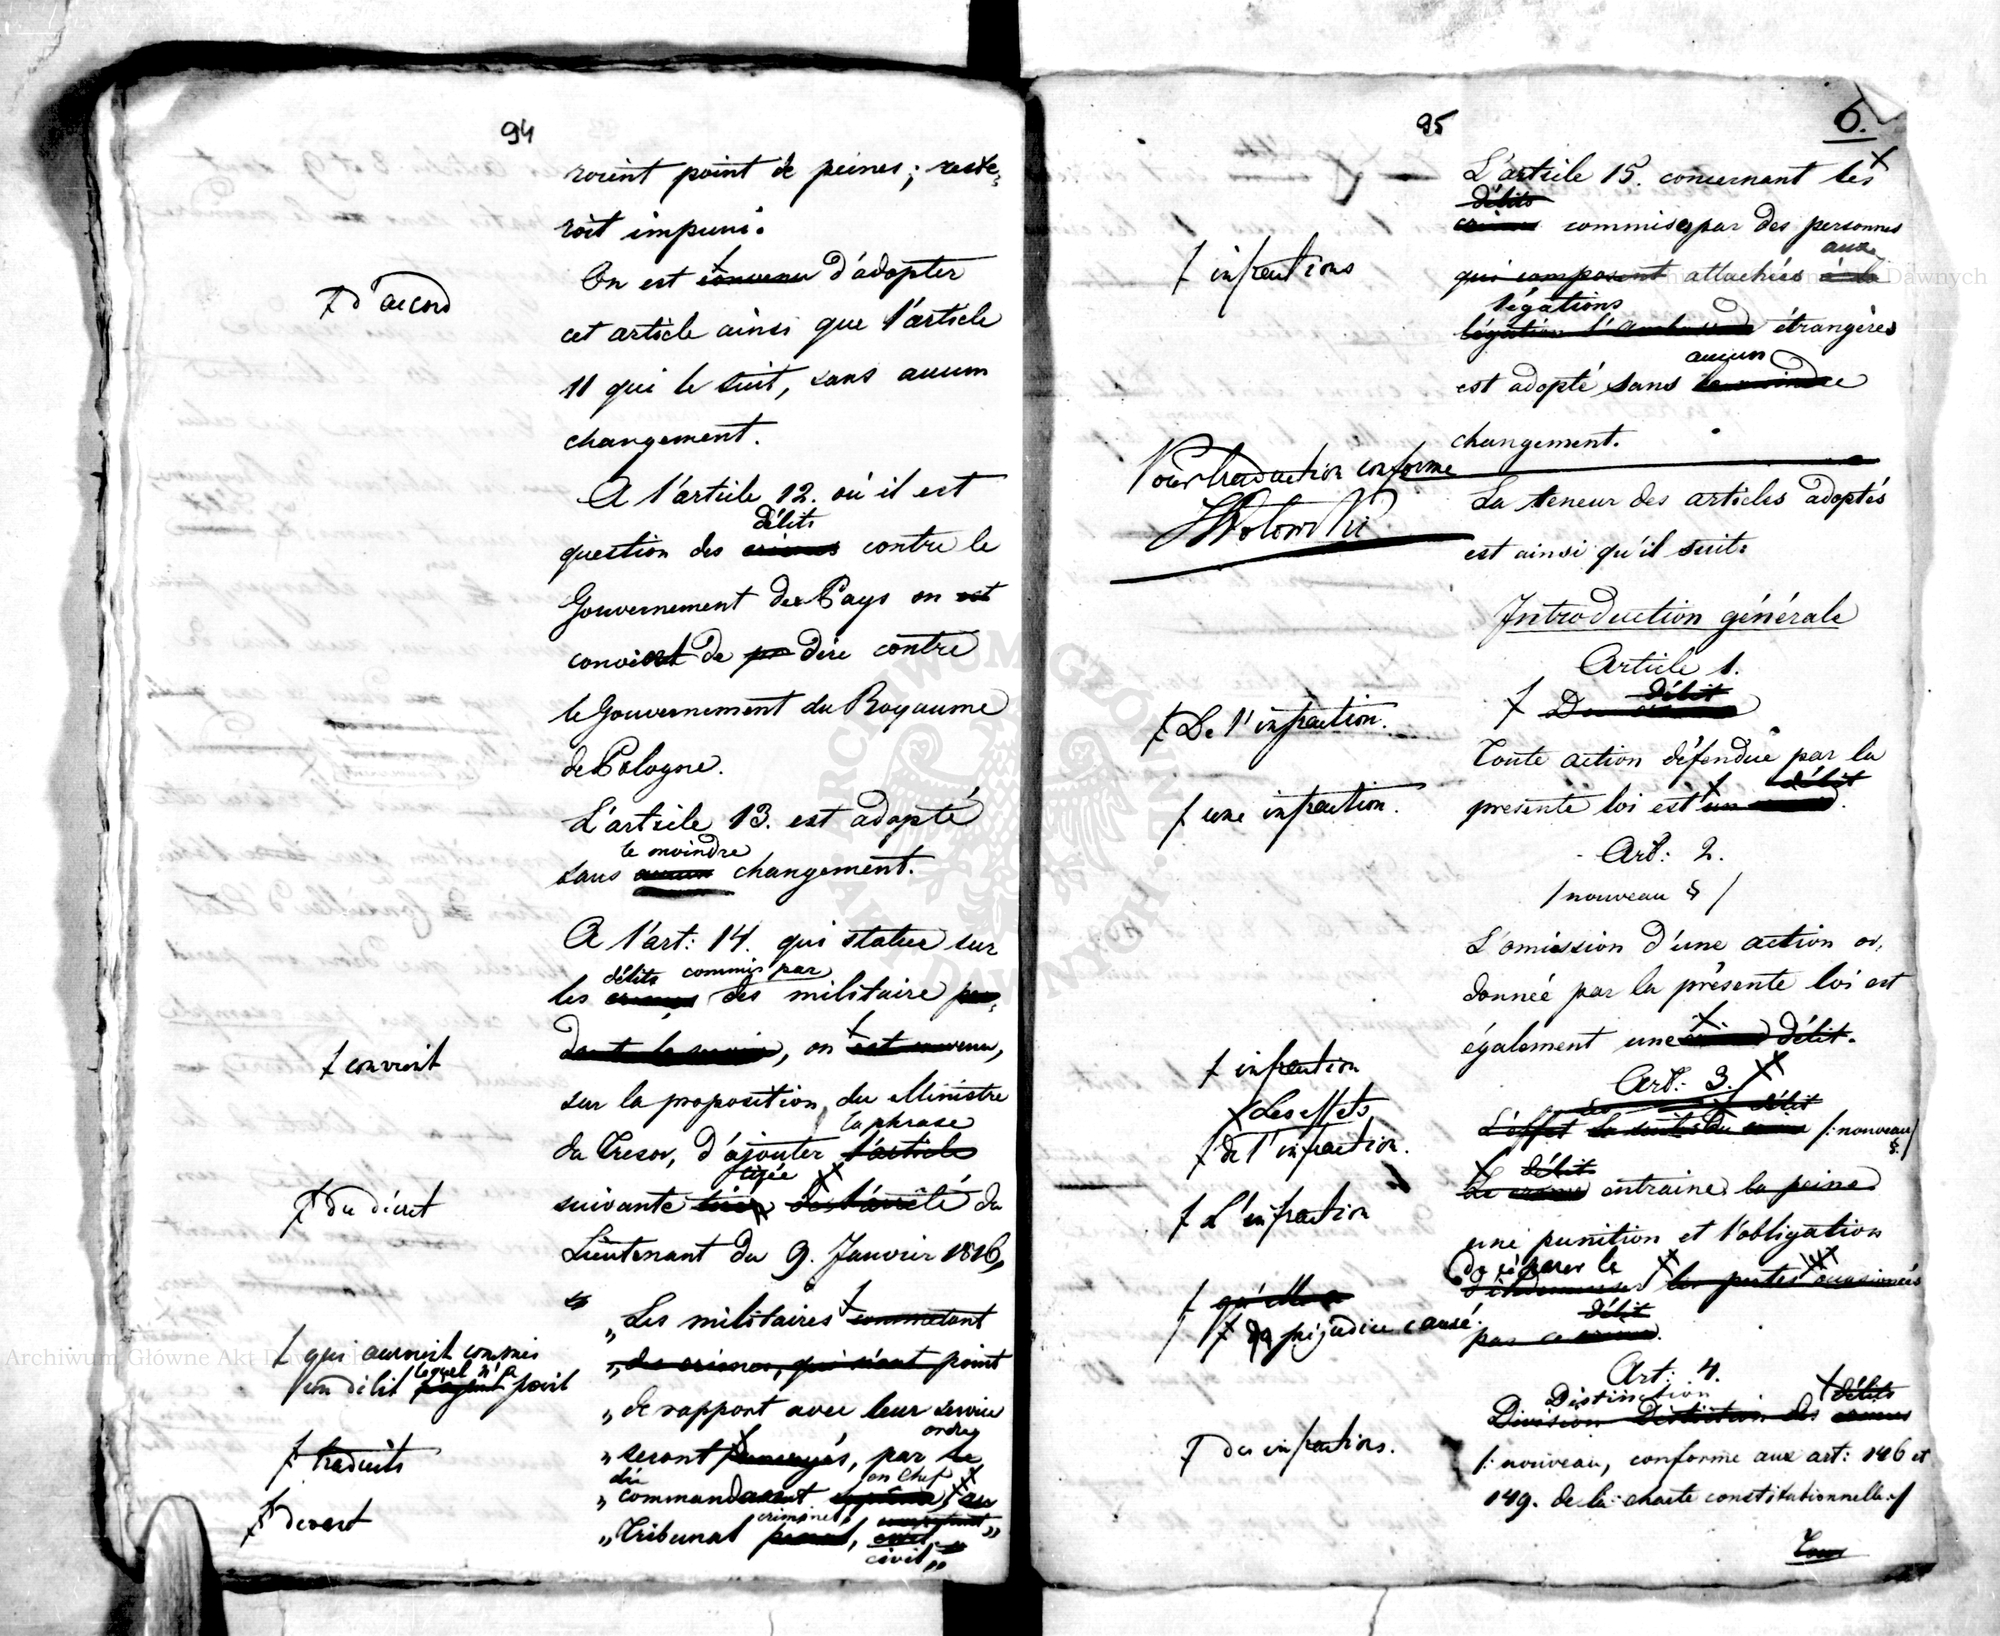 94
roient point de peines; reste-
roit impuni.
On est convenu d'adopter
ⵜ d'accord
cet article ainsi que l'article
11 qui le suit, sans aucun
changement.
A l'article 12. où il est
délits
question des crimes contre le
Gouvernement du Pays on est
convient de dire contre
le Gouvernement du Royaume
de Pologne.
L'article 13. est adopté
le moindre
sans aucun changement.
A l'art: 14. qui statue sur
délits commis par
les crimes des militaire pen-
dant le service, on est convenu,
ⵜ convient
sur la proposition du Ministre
la phrase
du Tresor, d'ajouter l'article
tirée
suivante de l'arrêté du
ⵜ du décret
Lieutenant du 9. Janvier 1816,
„Les militaires commetant
„des crimes, qui n'ont point
ⵜ qui auroient commis
lequel n'a
un délit point
„de rapport avec leur service
ordre
„seront renvoyés, par le
ⵜ traduits
du en Chef
„commandant suprême, au
ⵜ devant
criminel
„Tribunal penal,
civil,„
95
6.
L'article 15. concernant les
délits
crimes commises par des personnes
ⵜ infractions
aux
qui composent attachées à la
légations
légation étrangères
aucun
est adopté sans le moindre
changement.
Pour traduction conforme
HWołowski
La teneur des articles adoptés
est ainsi qu'il suit:
Introduction générale
Article 1.
délit
Du crime
ⵜ De l'infraction.
Toute action défendue par la
délit
présente loi est un crime.
ⵜ une infraction.
Art: 2.
/nouveau §/
L'omission d'une action or-
donnée par la présente loi est
également une crime délit.
ⵜ infraction
Art: 3.
des délit
L'effet la suite du crime /:nouveau §:/
Les effets
de l'infraction.
délit
Le crime entraine la peine
ⵜ L'infraction
une punition et l'obligation
de réparer le
d'indemniser les pertes occasionnées
délit
par ce crime.
ⵜ qu'elle a
ⵜ préjudice causé.
Art: 4.
Distinction délits
Division Distinction des crimes
ⵜ des infractions.
/:nouveau, conforme aux art: 146 et
149. de la charte constitutionnelle:/
Tous